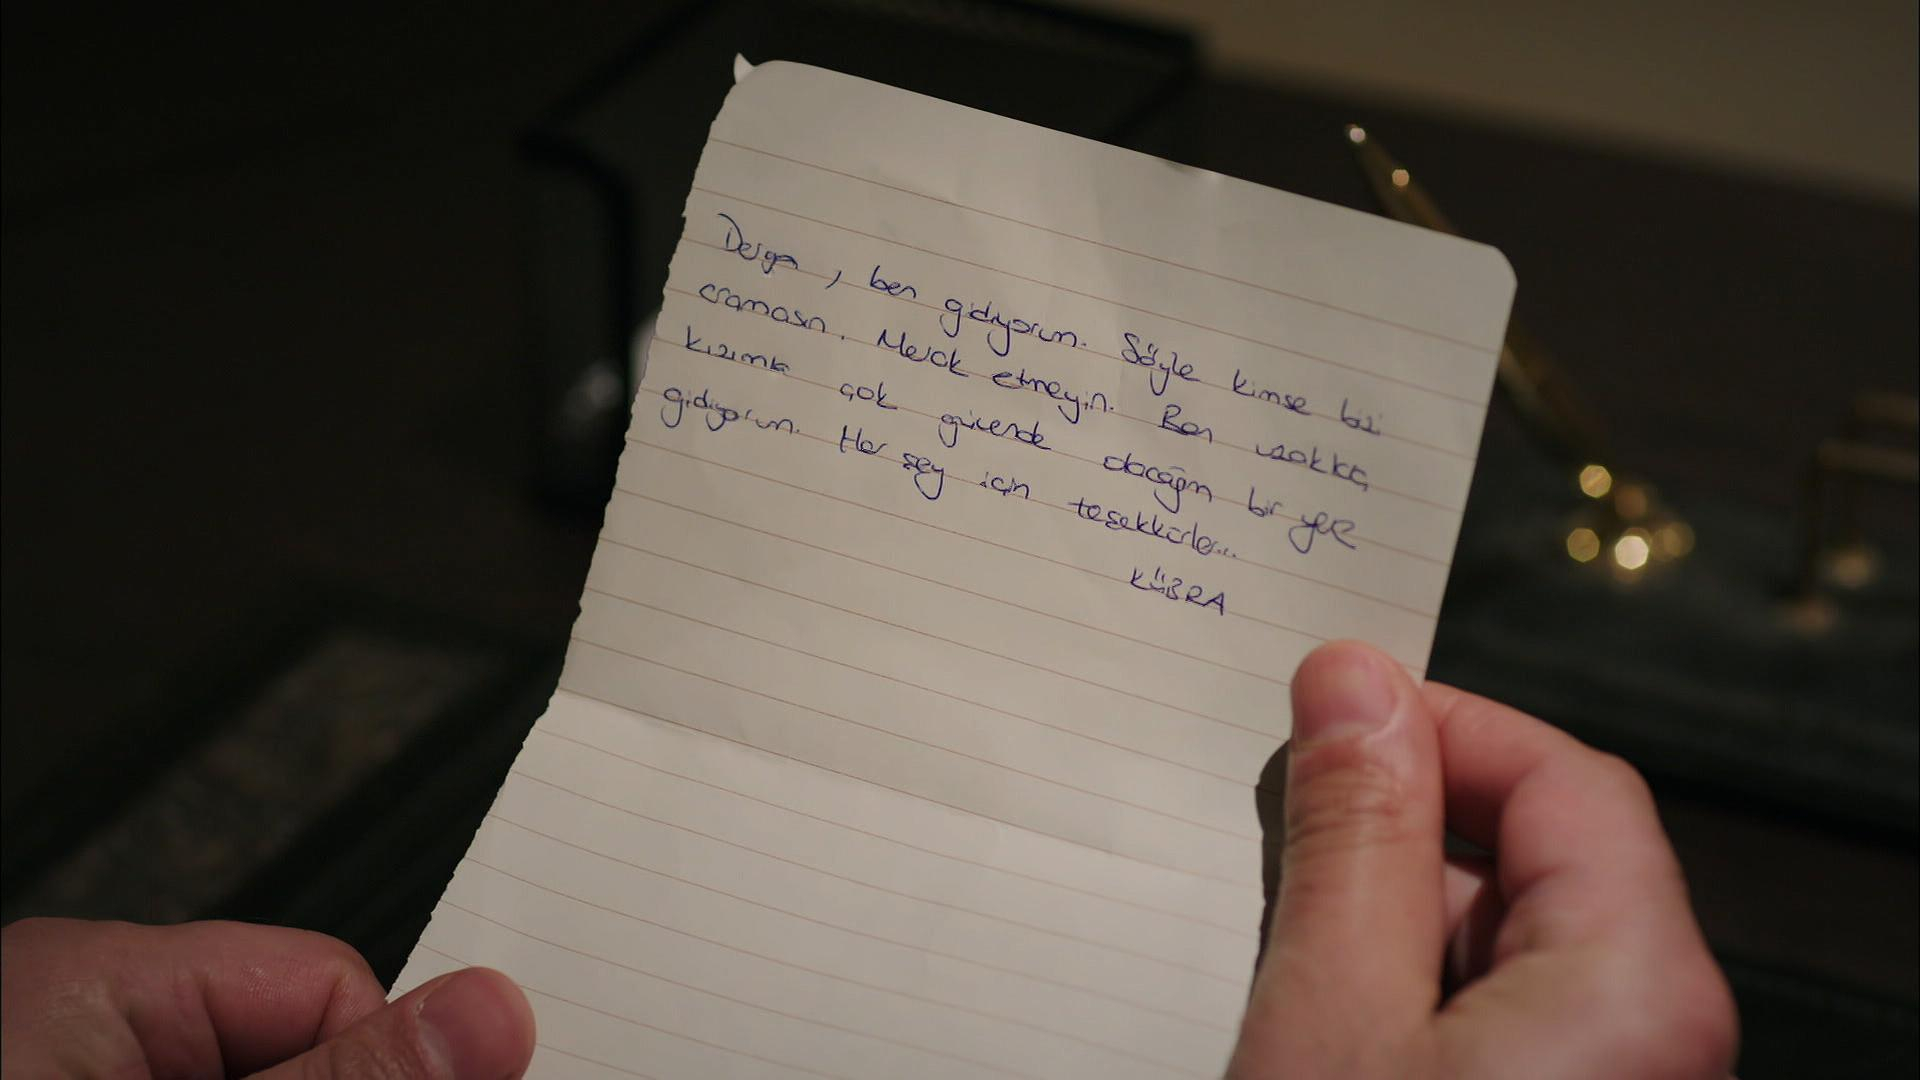 Derya, ben gidiyorum. Söyle kimse bizi
aramasın. Merak etmeyin. Ben uzakta,
kızımla çok güvende olacağım bir yere
gidiyorum. Her şey için teşekkürler...
KÜBRA